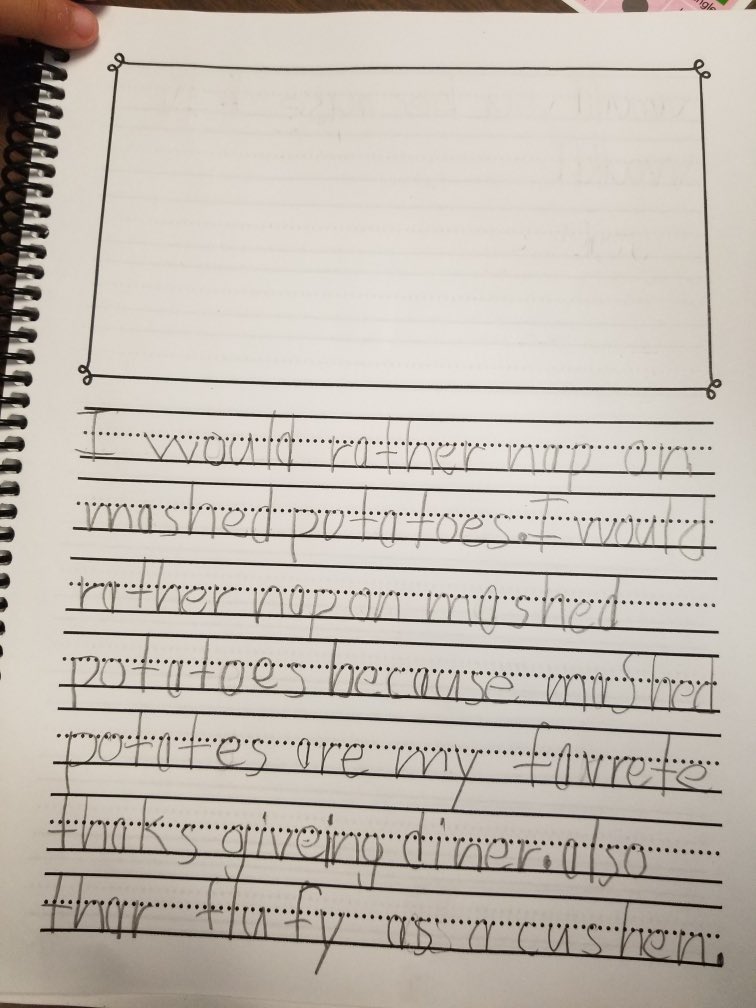 I would rather nap on
mashed potatoes. I would
rather nap on mashed
potatoes because mashed
potates are my favrete
thaks giveing diner. also
thar flufy as a cushen.